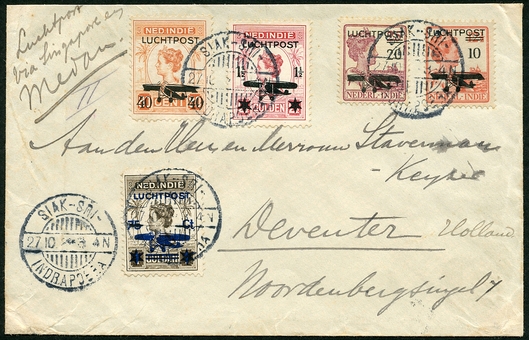 Luchtpost
via Singapore en
Medan.
II
NED.INDIE
LUCHTPOST
40 CENT 40
NED.INDIE
LUCHTPOST
1½ 1½
GULDEN
LUCHTPOST
20
NEDERL-INDIE
LUCHTPOST
10
NEDERL-INDIE
SIAK-SRI-
Aan den Heer en Mevrouw Staverman
Keyser
NED.INDIE
LUCHTPOST
Ct
GULDEN
SIAK-SRI-
27.10. 4N
INDRAPOERA
Deventer Holland
Noordenbergsingel 7